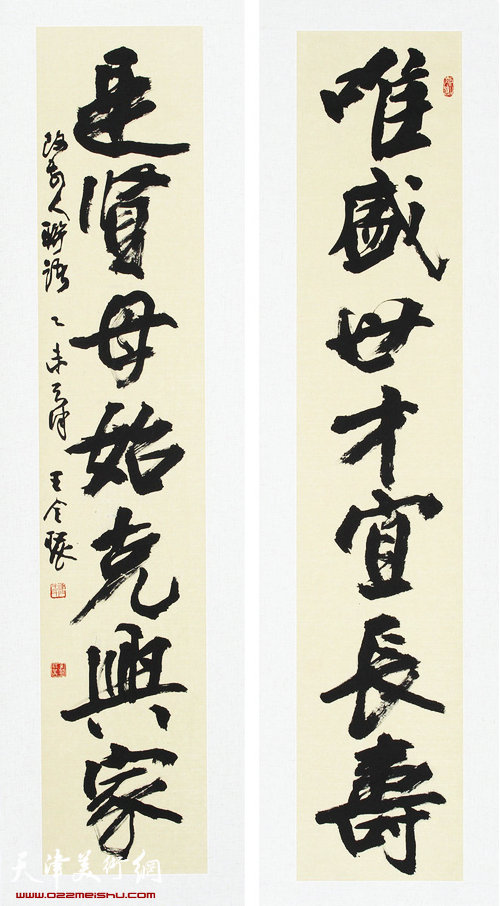 唯盛世才宜長壽
是賢母始克興家
改古人聯語 乙未天津 王全聚
天津美術網
www.022meishu.com